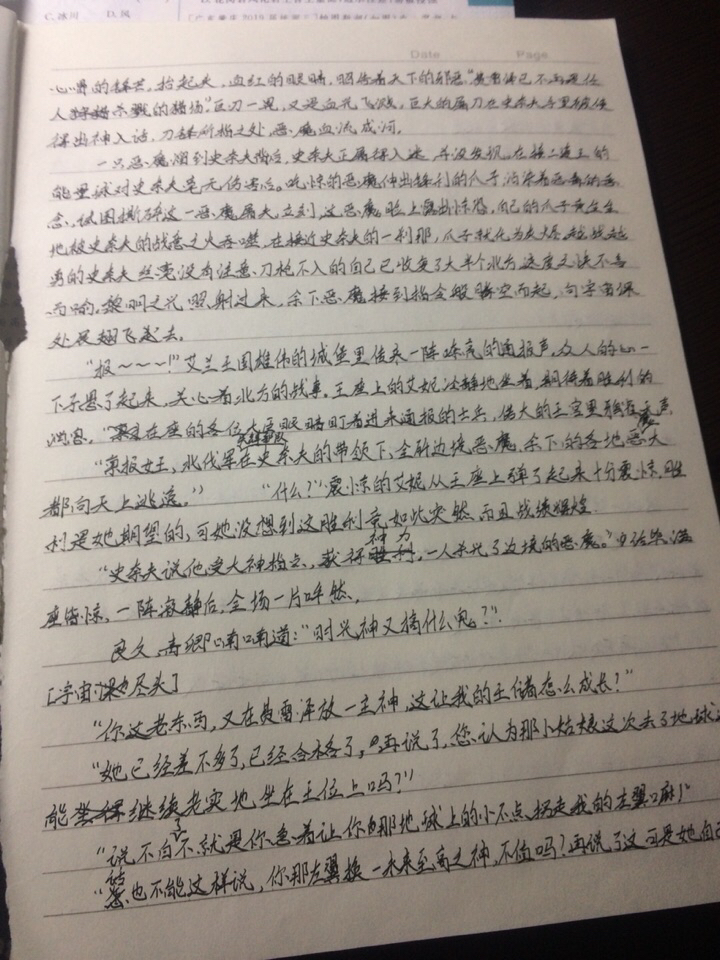 C.冰川 D.风
Date Page
抬起来,血红的眼睛,昭任着天下的邪恶。"费雷泽已不再是任
人杀戮的猎场。"巨刃一晃,又是血光飞溅,巨大的屠刀在史奈夫手里被使
得出神入话,刀锋所指之处,恶魔血流成河。
一只恶魔溜到史奈夫背后,史奈夫正屠得入迷,并没发现,在他二连王的
能量球对史奈夫毫无伤害后。吃惊的恶魔伸出锋利的爪子沾染着恶毒的意
念,试图撕碎这一恶魔屠夫,立刻,这恶魔脸上露出惊恐,自己的爪子竟生生
地被史奈夫的战意之火吞噬,在接近史奈夫的一刹那,爪子就化为灰烬,越战越
勇的史奈夫丝毫没有注意,刀枪不入的自己已收复了大半个北方,速度之快不言
而喻。黎明之光照射过来,余下恶魔接到指令般腾空而起,向宇宙深
处展翅飞走去。
"报~~~!"艾兰王国雄伟的城堡里传来一阵嘹亮的通报声,众人的心一
下子悬了起来,关心着北方的战事。王座上的艾妮冷静地坐着,期待着胜利的
消息。在座的各位大臣眼睛盯着进来通报的士兵,偌大的王宫里鸦雀无声
"禀报女王,北伐军在史奈夫的带领下,全歼边境恶魔,余下的各地恶魔大
都向天上逃逸。" "什么?"震惊的艾妮从王座上弹了起来十分震惊,胜
利是她期望的,可她没想到这胜利竟如此突然,而且战绩辉煌
"史奈夫说他受大神指点,获得神力,一人杀光了边境的恶魔。"此话毕,满
座皆惊,一阵寂静后,全场一片哗然。
良久,青卿喃喃道:"时光神又搞什么鬼?"
[宇宙尽头]
"你这老东西,又在费雷泽放一主神,这让我的王储怎么成长?"
"她已经差不多了,已经合格了。再说了,您认为那小姑娘这次去了地球还
能继续老实地坐在王位上吗?"
"说不白了不就是你急着让你那地球上的小不点拐走我的左翼嘛!"
"话也不能这样说,你那左翼换一未来至高之神,不值吗?再说了这可是她自己